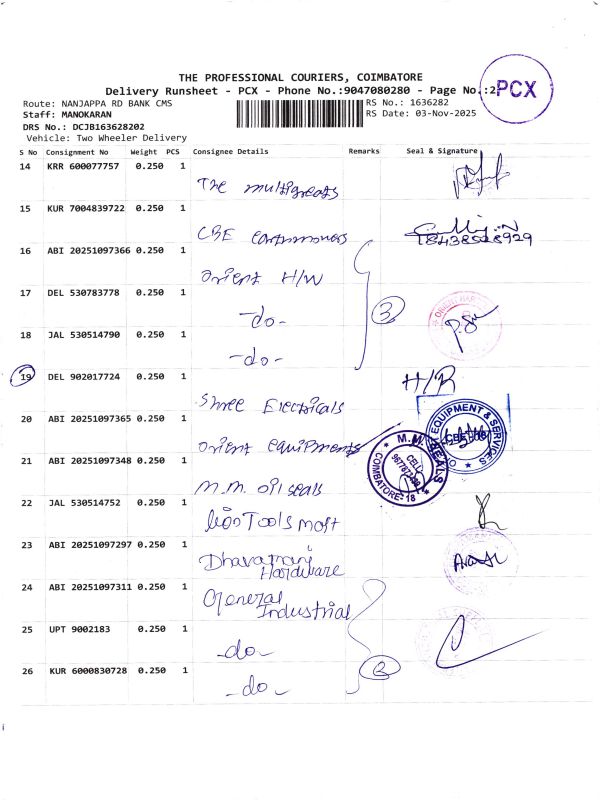 THE PROFESSIONAL COURIERS, COIMBATORE
Delivery Runsheet - PCX - Phone No.:9047080280 - Page No.:2
PCX
Route: NANJAPPA RD BANK CMS
RS No.: 1636282
Staff: MANOKARAN
RS Date: 03-Nov-2025
DRS No.: DCJB163628202
Vehicle: Two Wheeler Delivery
S No Consignment No Weight PCS Consignee Details Remarks Seal & Signature
14 KRR 600077757 0.250 1
The multigreats
15 KUR 7004839722 0.250 1
CBE
16 ABI 20251097366 0.250 1
Orient H/W
17 DEL 530783778 0.250 1
-do-
3
18 JAL 530514790 0.250 1
-do-
19 DEL 902017724 0.250 1
H/R
Shree Electricals
20 ABI 20251097365 0.250 1
Orient equipments
EQUIPMENT & SERVICES
21 ABI 20251097348 0.250 1
M.M. Oil seals
M.M. SEALS
CELL:
COIMBATORE - 18
22 JAL 530514752 0.250 1
lion Tools mart
23 ABI 20251097297 0.250 1
Dhavamani
Hardware
24 ABI 20251097311 0.250 1
General
Industrial
25 UPT 9002183 0.250 1
-do-
26 KUR 6000830728 0.250 1
-do-